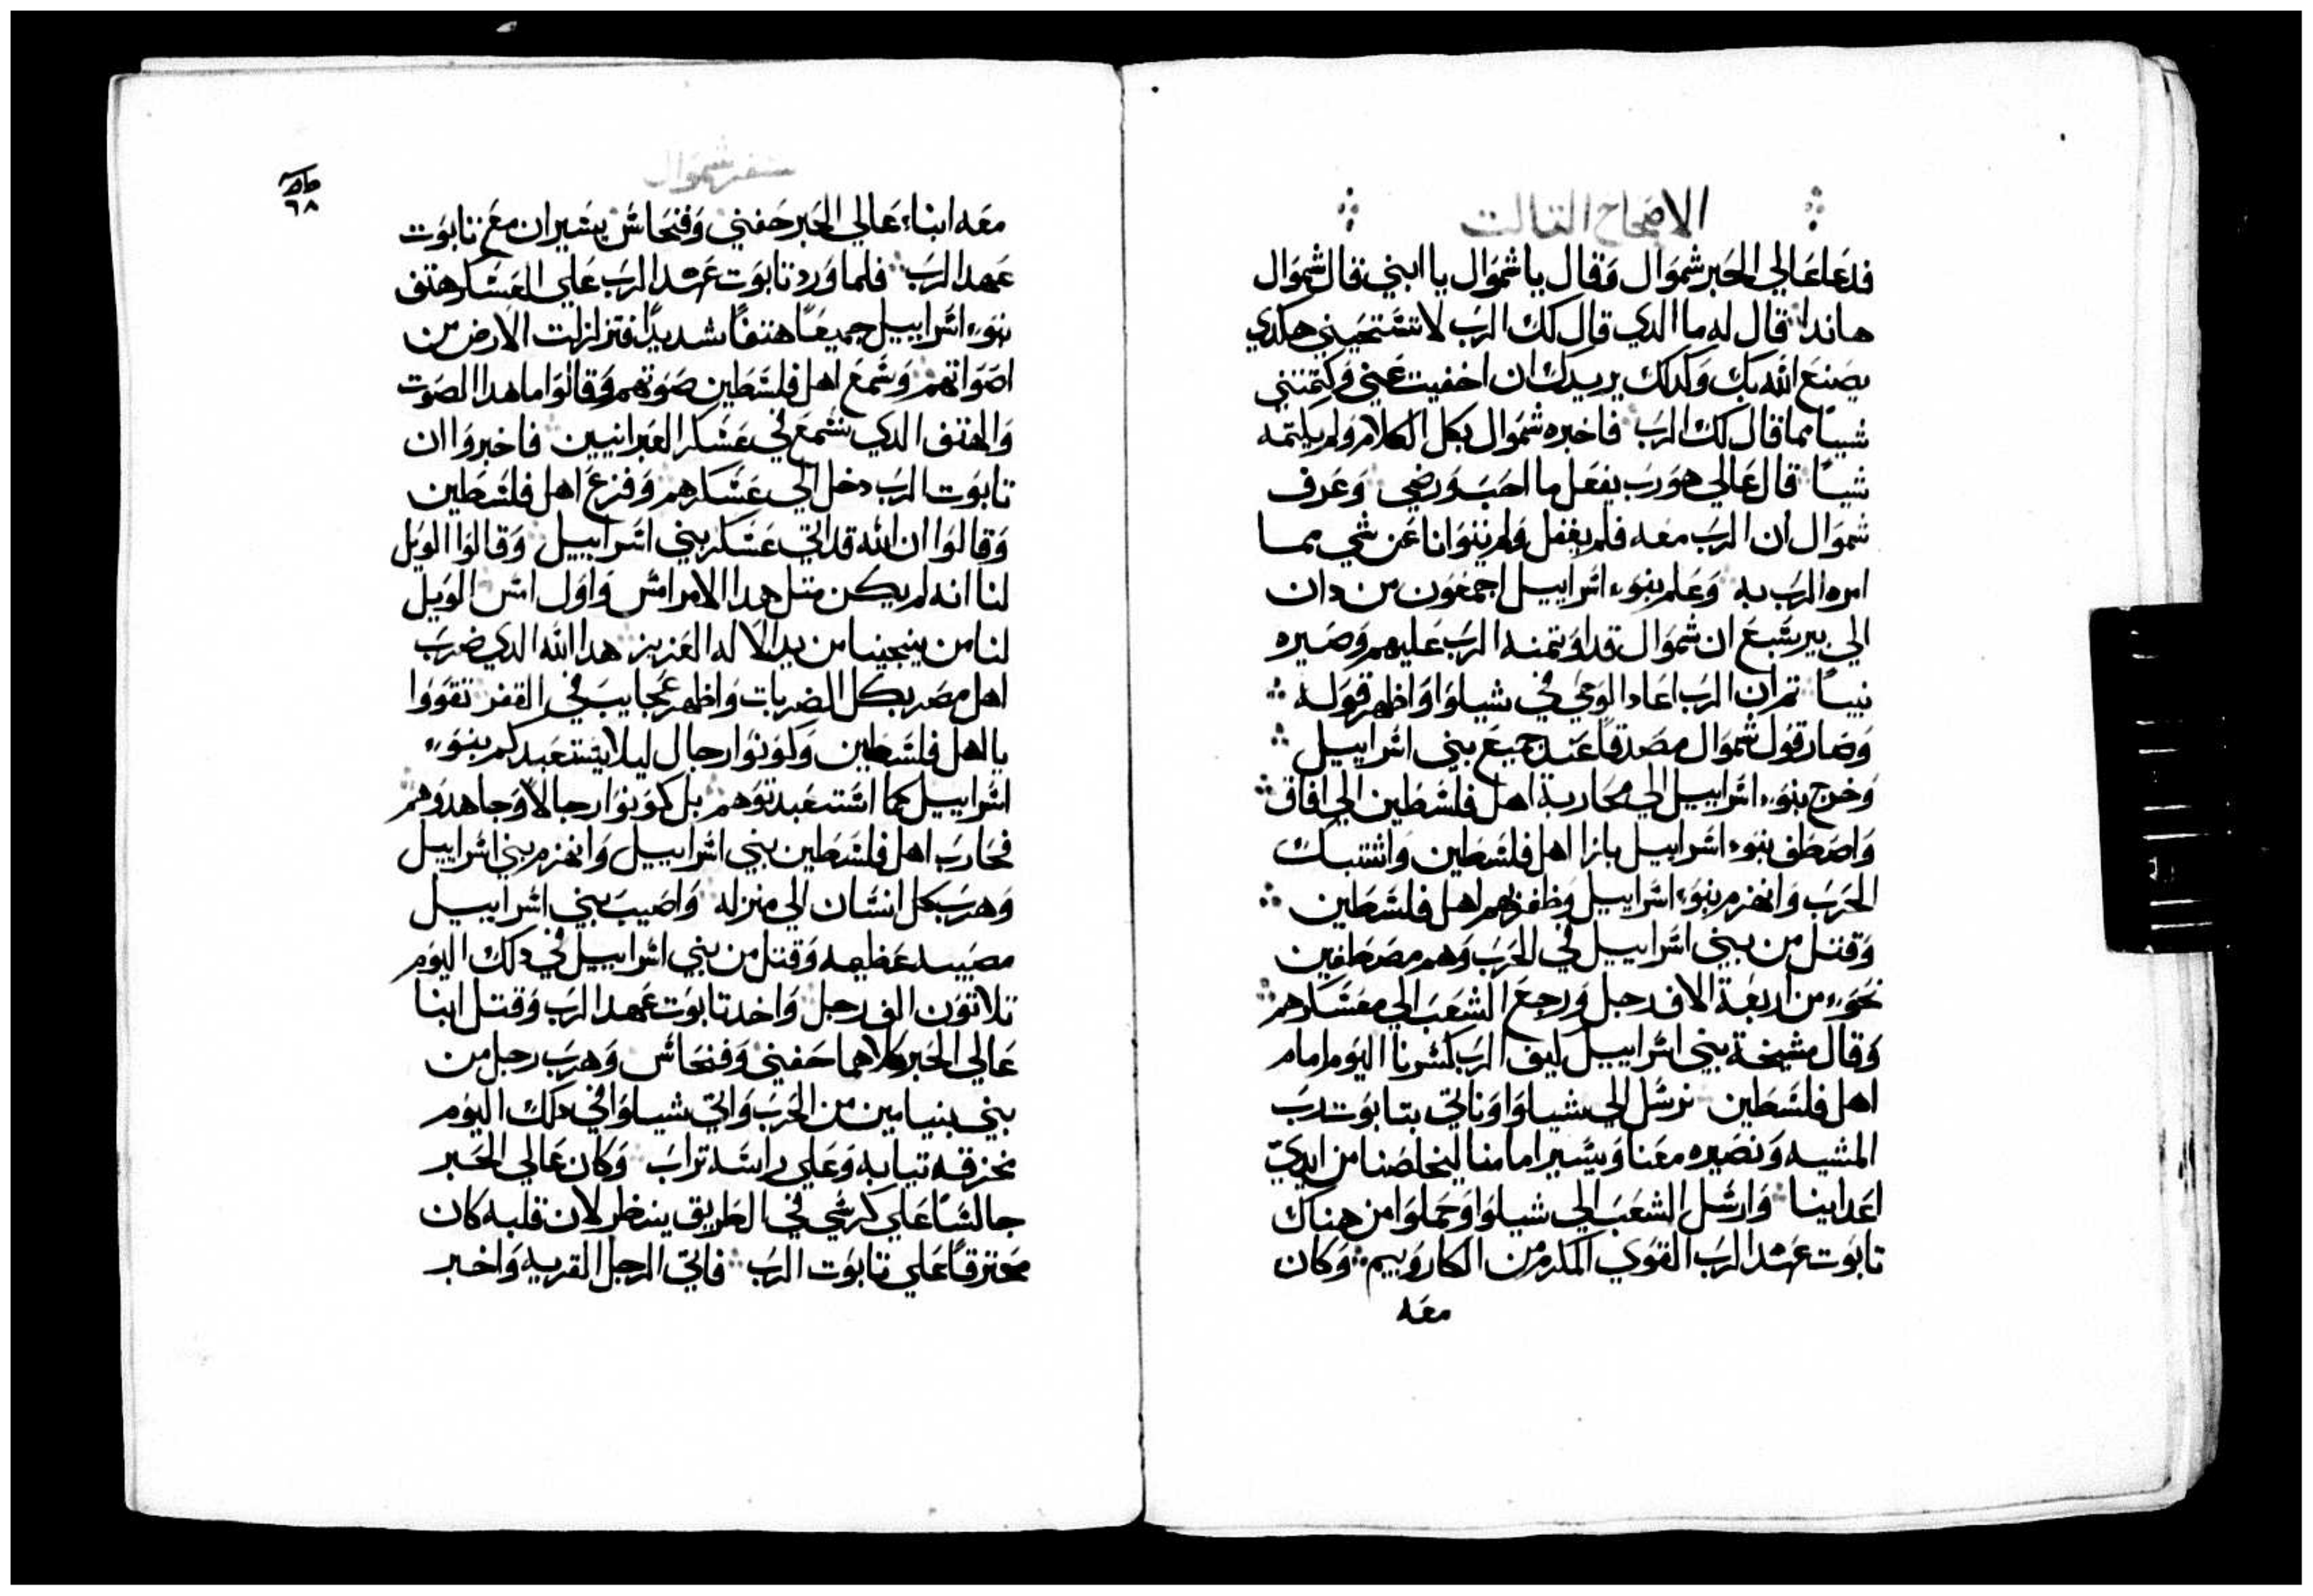 الاصحاح التالت
فدعا عالي الحبر شموال وقال يا شموال يا ابني قال شموال
هاندا قال له ما الدي قال لك الرب لا تستحيني هكدي
يصنع الله بك وكدلك يزيدك ان اخفيت عني وكتمتني
شيا مما قال لك الرب فاخبره شموال بكل الكلام ولم يكتمه
شيا قال عالي هو رب يفعل ما احب ورضي وعرف
شموال ان الرب معه فلم يغفل ولم يتوانا عن شي مما
امره الرب به وعلم بنوء اسراييل اجمعون من دان
الي بير شبع ان شموال قد اوتمنه الرب عليهم وصيره
نبيا تم ان الرب اعاد الوحي في شيلوا واظهر قوله
وصار قول شموال مصدقا عند جميع بني اسراييل
وخرج بنوء اسراييل الي محاربة اهل فلسطين الي افاق
واصطف بنوء اسراييل بازا اهل فلسطين واشتبك
الحرب وانهزم بنوء اسراييل وظفر بهم اهل فلسطين
وقتل من بني اسراييل في الحرب وهم مصطفين
نحوء من اربعة الاف رجل ورجع الشعب الي معسكرهم
وقال مشيخة بني اسراييل ليف الرب كسرنا اليوم امام
اهل فلسطين نرسل الي شيلوا وناتي بتابوت رب
المشيه ونصيره معنا ويسير امامنا ليخلصنا من ايدي
اعداينا وارسل الشعب الي شيلوا وحملوا من هناك
تابوت عهد الرب القوي المكرم من الكاروبيم وكان
معه
سفر شموال
٦٨
معه ابناء عالي الحبر حفني وفنحاس يسيران مع تابوت
عهد الرب فلما ورد تابوت عهد الرب علي العسكر هتف
بنوء اسراييل جميعا هتفا شديدا فتزلزلت الارض من
اصواتهم وسمع اهل فلسطين صوتهم وقالوا ما هدا الصوت
والهتف الدي نسمع في عسكر العبرانيين فاخبروا ان
تابوت الرب دخل الي عسكرهم وفزع اهل فلسطين
وقالوا ان الله قد اتي عسكر بني اسراييل وقالوا الويل
لنا انه لم يكن متل هدا الامر امس واول امس الويل
لنا من ينجينا من يد الاله العزيز هدا الله الدي ضرب
اهل مصر بكل الضربات واظهر عجايب في القفر تقووا
يا اهل فلسطين وكونوا رجال ليلا يستعبدكم بنوء
اسراييل كما استعبدتوهم بل كونوا رجالا وجاهدوهم
فحارب اهل فلسطين بني اسراييل وانهزم بني اسراييل
وهرب كل انسان الي منزله واصيب بني اسراييل
مصيبه عظيمه وقتل من بني اسراييل في دلك اليوم
تلاتون الف رجل واخد تابوت عهد الرب وقتل ابنا
عالي الحبر كلاهما حفني وفنحاس وهرب رجل من
بني بنيامين من الحرب واتي شيلوا في دلك اليوم
مخزقه تيابه وعلي راسه تراب وكان عالي الحبر
جالسا علي كرسي في الطريق ينظر لان قلبه كان
محترقا علي تابوت الرب فاتي الرجل القريه واخبر